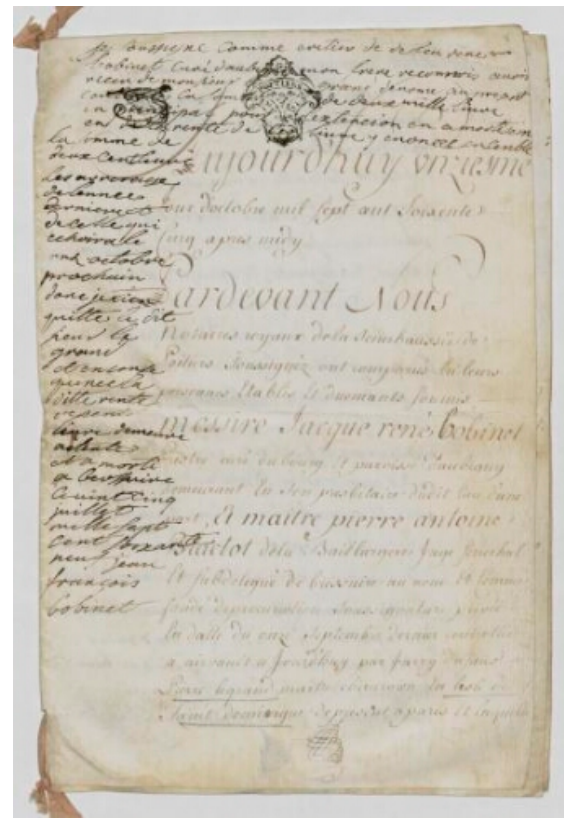 je soussigné comme eritier de defeu rene
bobinet Curé daubigny mon frere reconnois avoir
receu de monsieur
de deux mille livre
en principal pour extincion en amortisem
de rente de livre y enoncee ensemble
la somme de
deux cent livre
les arrerages
de lannee
derniere et
de celle qui
echoira le
onz octobre
prochain
donc je tien
quitte le dit
sieur le
grand
quitte la
ditte rente
livre demeure
eteinte
et amortie
a
ce vint cinq
juillet
mille sept
cent soixante
neuf jean
françois
bobinet
Aujourd'huy onziesme
jour d'octobre mil sept cent soixante
cinq apres midy
Pardevant Nous
Notaires royaux de la Senechaussée de
Poitiers soussignez ont comparus en leurs
personnes Etablis et duement soumis
messire Jacque rené bobinet
prestre curé du bourg et paroisse d'aubigny
demeurant en son presbitaire dudit lieu d'une
part, et maitre pierre antoine
de la Baillargere Juge senechal
et subdelegué de bressuire au nom et comme
fondé de procuration sous signature privée
en datte du onze septembre dernier controllé
a airvault a par
Pierre legrand maitre chirurgien
Saint domingue de present a paris et laquelle